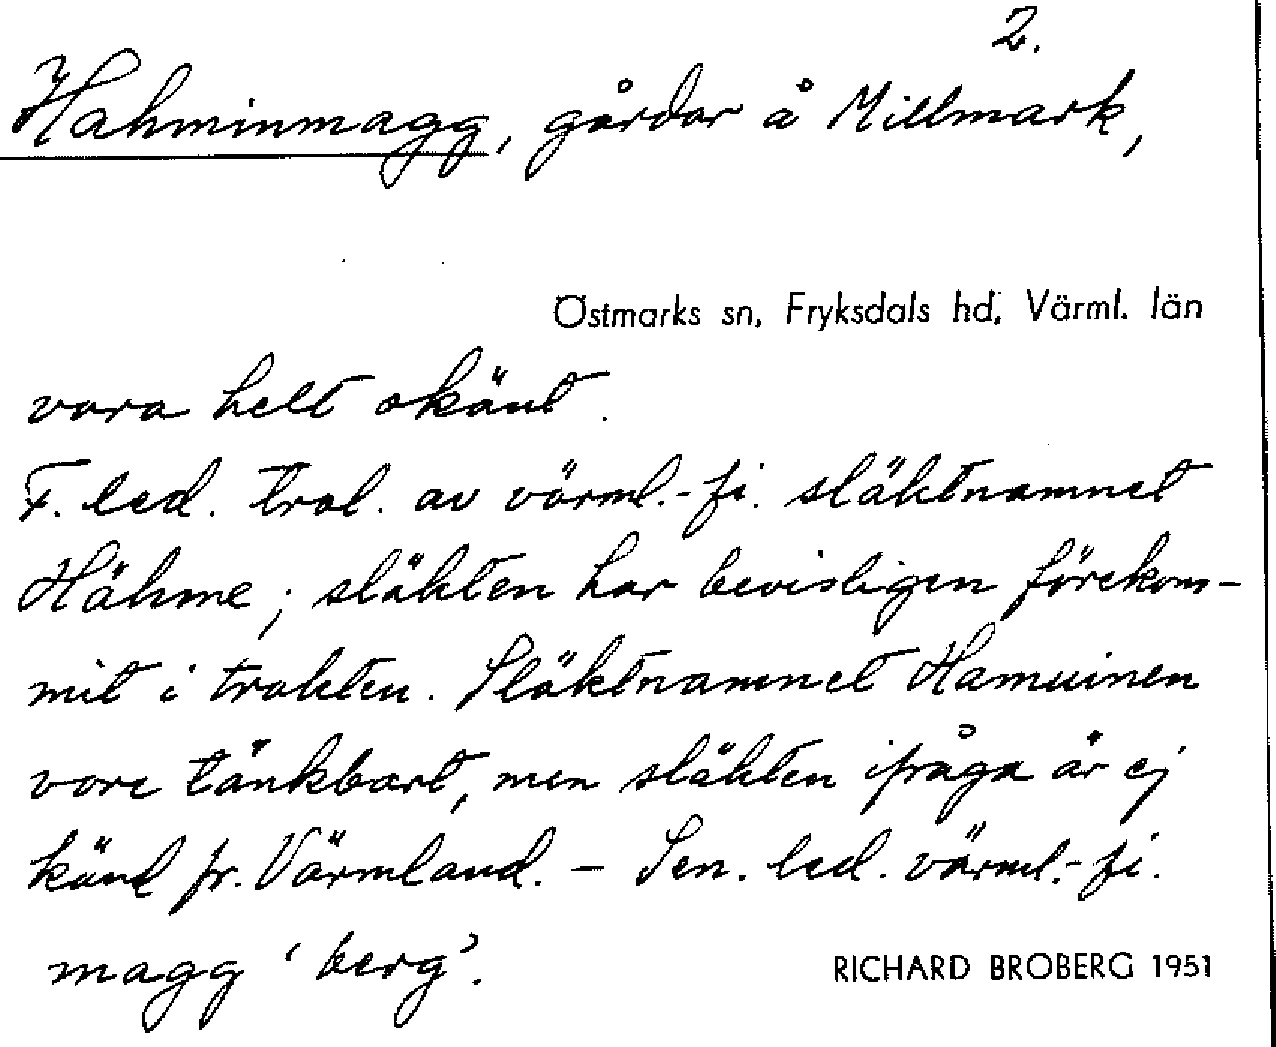 2.
Hahminmagg, gårdar å Millmark,
Östmarks sn, Fryksdals hd, Värml. län
vara helt okänt.
F. led. trol. av värml.-fi. släktnamnet
Hähme; släkten har bevisligen förekom-
mit i trakten. Släktnamnet Hamuinen
vore tänkbart, men släkten ifråga är ej
känd fr. Värmland. - Sen. led. värml.-fi.
magg 'berg'.
RICHARD BROBERG 1951